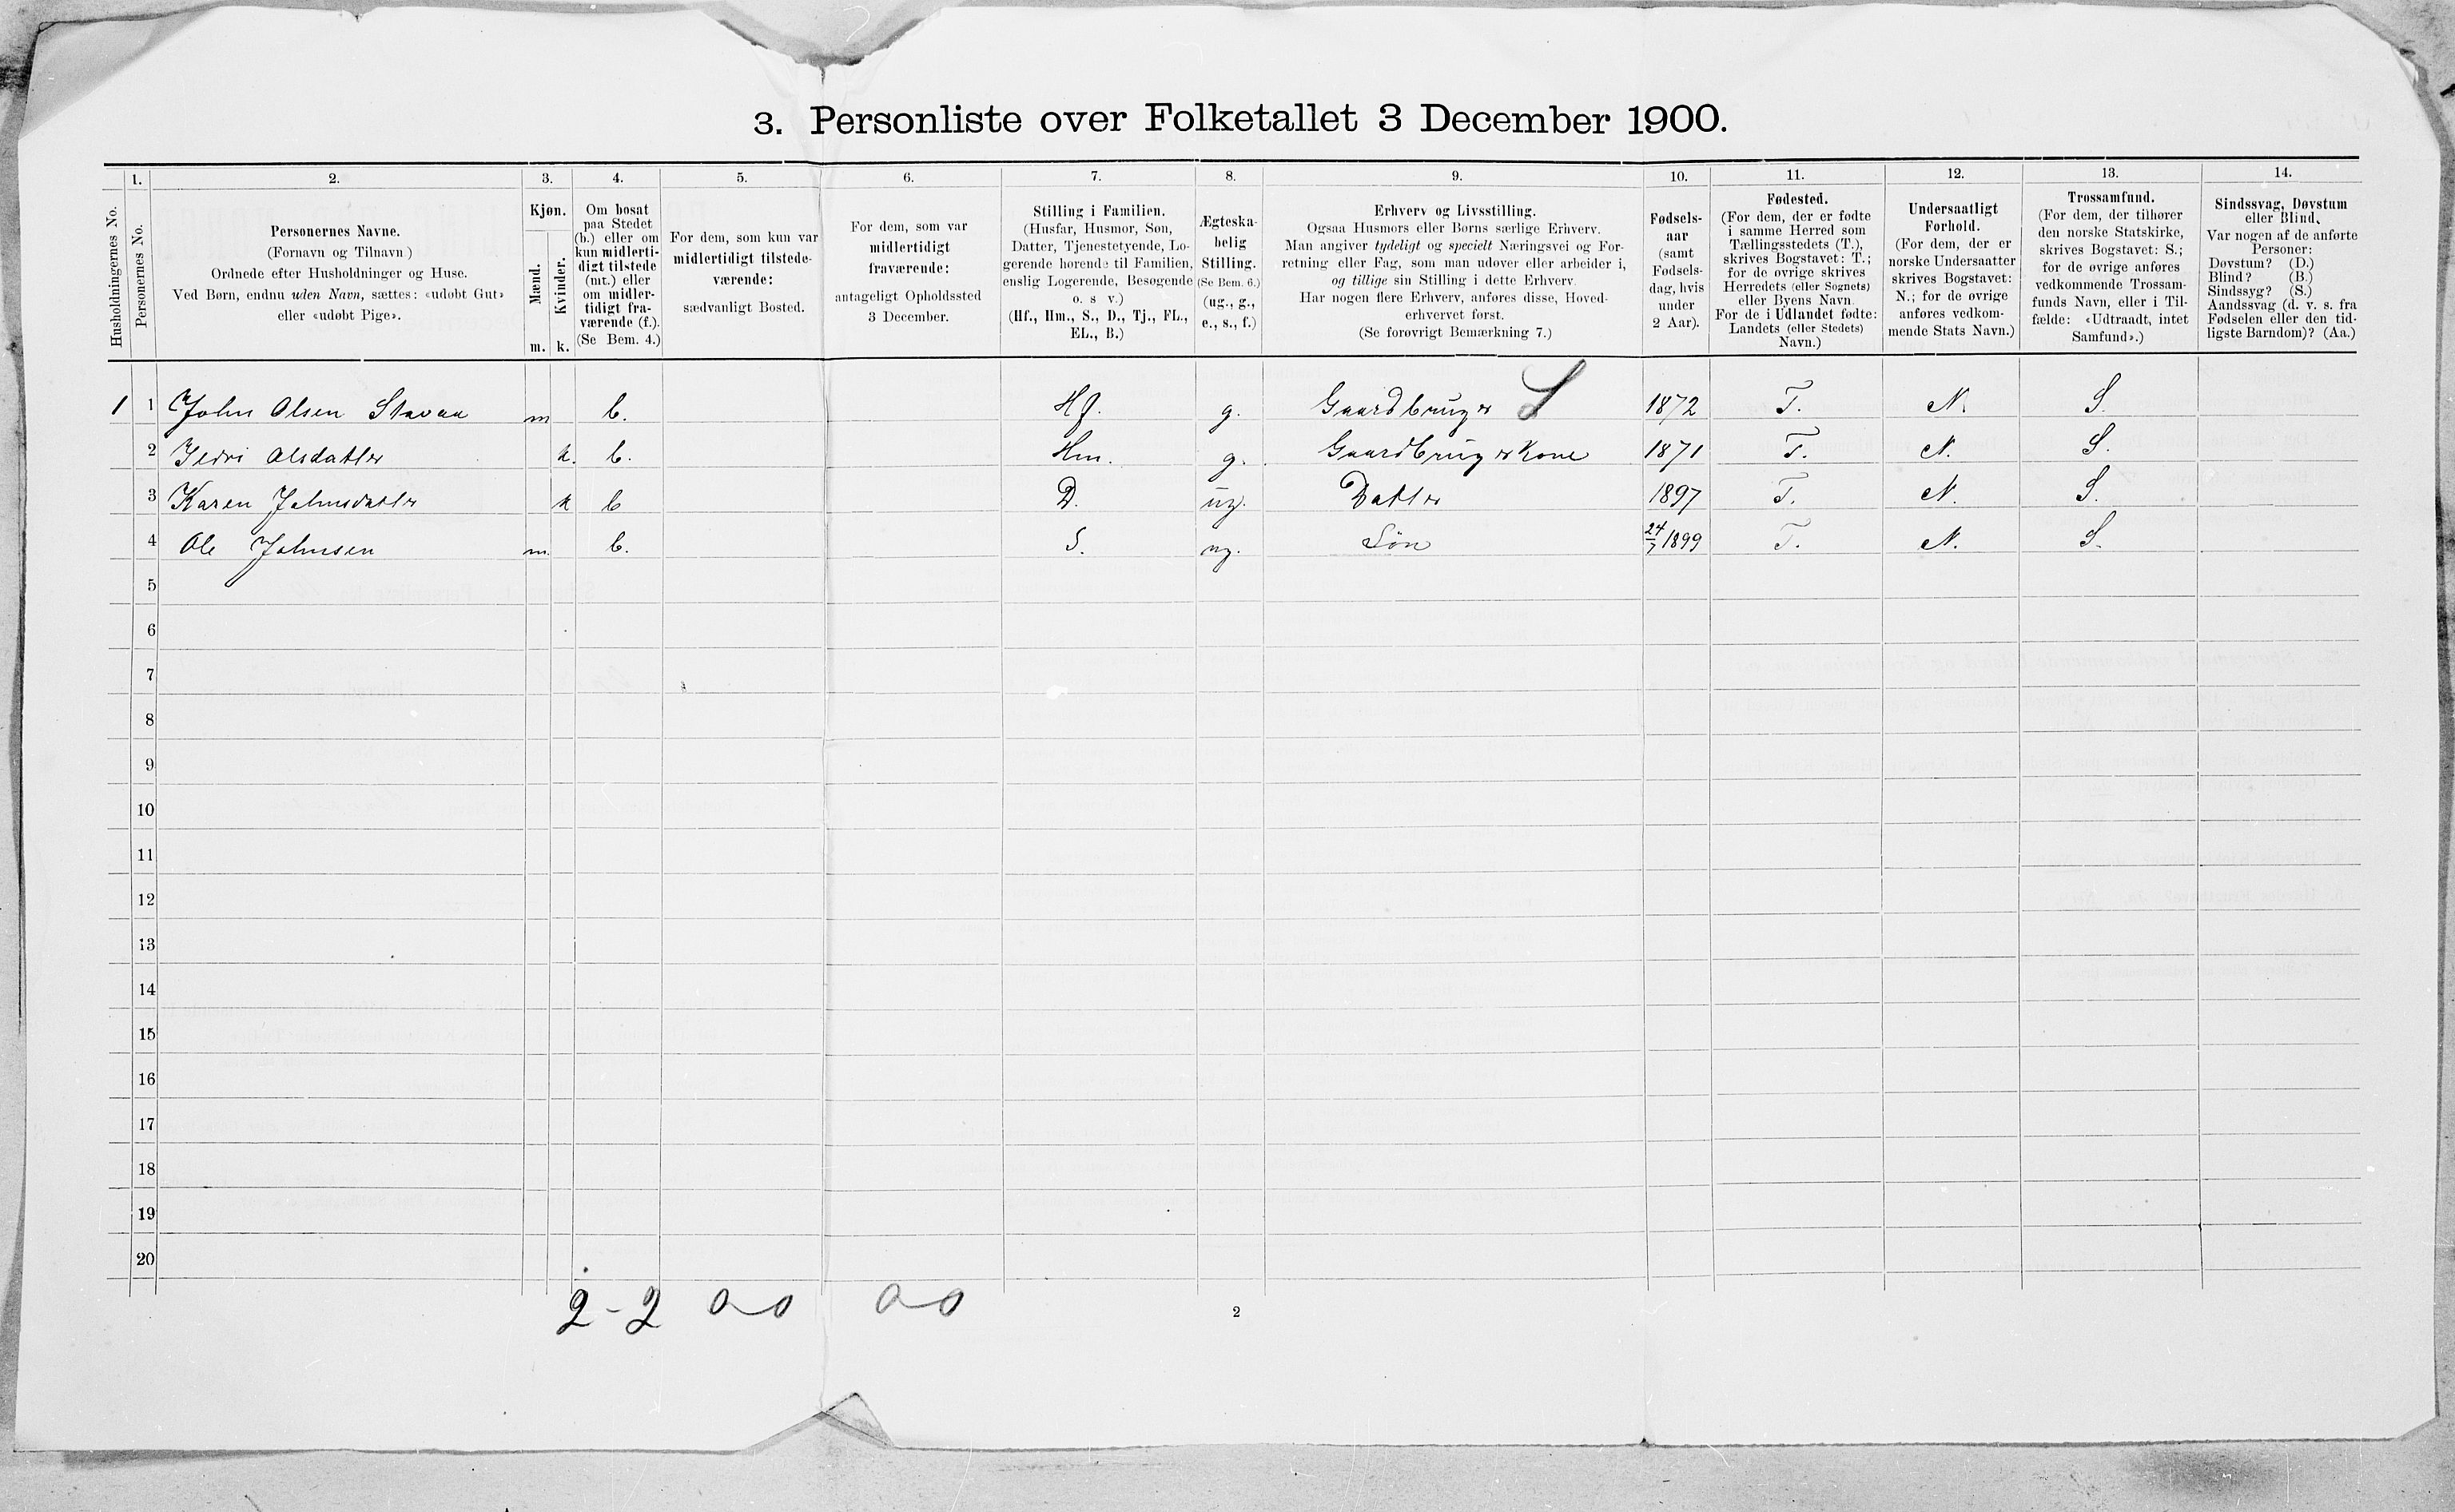 3. Personliste over Folketallet 3 December 1900.
Husholdningernes No.
1.
Personernes No.
2.
Personernes Navne.
(Fornavn og Tilnavn)
Ordnede efter Husholdninger og Huse.
Ved Børn, endnu uden Navn, sættes: «udøbt Gut»
eller «udøbt Pige».
3.
Kjøn.
Mænd.
m.
Kvinder.
k.
4.
Om bosat
paa Stedet
(b.) eller om
kun midlerti-
digt tilstede
(mt.) eller
om midler-
tidigt fra-
værende (f.).
(Se Bem. 4.)
5.
For dem, som kun var
midlertidigt tilstede-
værende:
sædvanligt Bosted.
6.
For dem, som var
midlertidigt
fraværende:
antageligt Opholdssted
3 December.
7.
Stilling i Familien.
(Husfar, Husmor, Søn,
Datter, Tjenestetyende, Lo-
gerende hørende til Familien,
enslig Logerende, Besøgende
o. s v.)
(Hf., Hm., S., D., Tj., FL.,
EL., B.)
8.
Ægteska-
belig
Stilling.
(Se Bem. 6.)
(ug., g.,
e., s., f.)
9.
Erhverv og Livsstilling.
Ogsaa Husmors eller Børns særlige Erhverv.
Man angiver tydeligt og specielt Næringsvei og For-
retning eller Fag, som man udøver eller arbeider i,
og tillige sin Stilling i dette Erhverv.
Har nogen flere Erhverv, anføres disse, Hoved-
erhvervet først.
(Se forøvrigt Bemærkning 7.)
10.
Fødsels-
aar
(samt
Fødsels-
dag, hvis
under
2 Aar).
11.
Fødested.
(For dem, der er fødte
i samme Herred som
Tællingsstedets (T.),
skrives Bogstavet: T.;
for de øvrige skrives
Herredets (eller Sognets)
eller Byens Navn.
For de i Udlandet fødte:
Landets (eller Stedets)
Navn.)
12.
Undersaatligt
Forhold.
(For dem, der er
norske Undersaatter
skrives Bogstavet:
N.; for de øvrige
anføres vedkom-
mende Stats Navn.)
13.
Trossamfund.
(For dem, der tilhører
den norske Statskirke,
skrives Bogstavet: S.;
for de øvrige anføres
vedkommende Trossam-
funds Navn, eller i Til-
fælde: «Udtraadt, intet
Samfund».)
14.
Sindssvag, Døvstum
eller Blind.
Var nogen af de anførte
Personer:
Døvstum? (D.)
Blind? (B.)
Sindssyg? (S.)
Aandssvag (d. v. s. fra
Fødselen eller den tid-
ligste Barndom)? (Aa.)
1 1 John Olsen Stavaa m b. Hf. g. Gaardbruger S 1872 T. N. S.
2 Olsdatter k. b. Hm. g. Gaardbruger Kone 1871 T. N. S.
3 Karen Johnsdatter k b D. ug. Datter 1897 T. N. S.
4 Ole Johnsen m. b. S. ug. Søn 24/7 1899 T. N. S.
5
6
7
8
9
10
11
12
13
14
15
16
17
18
19
20
2-2 0-0 0-0
2